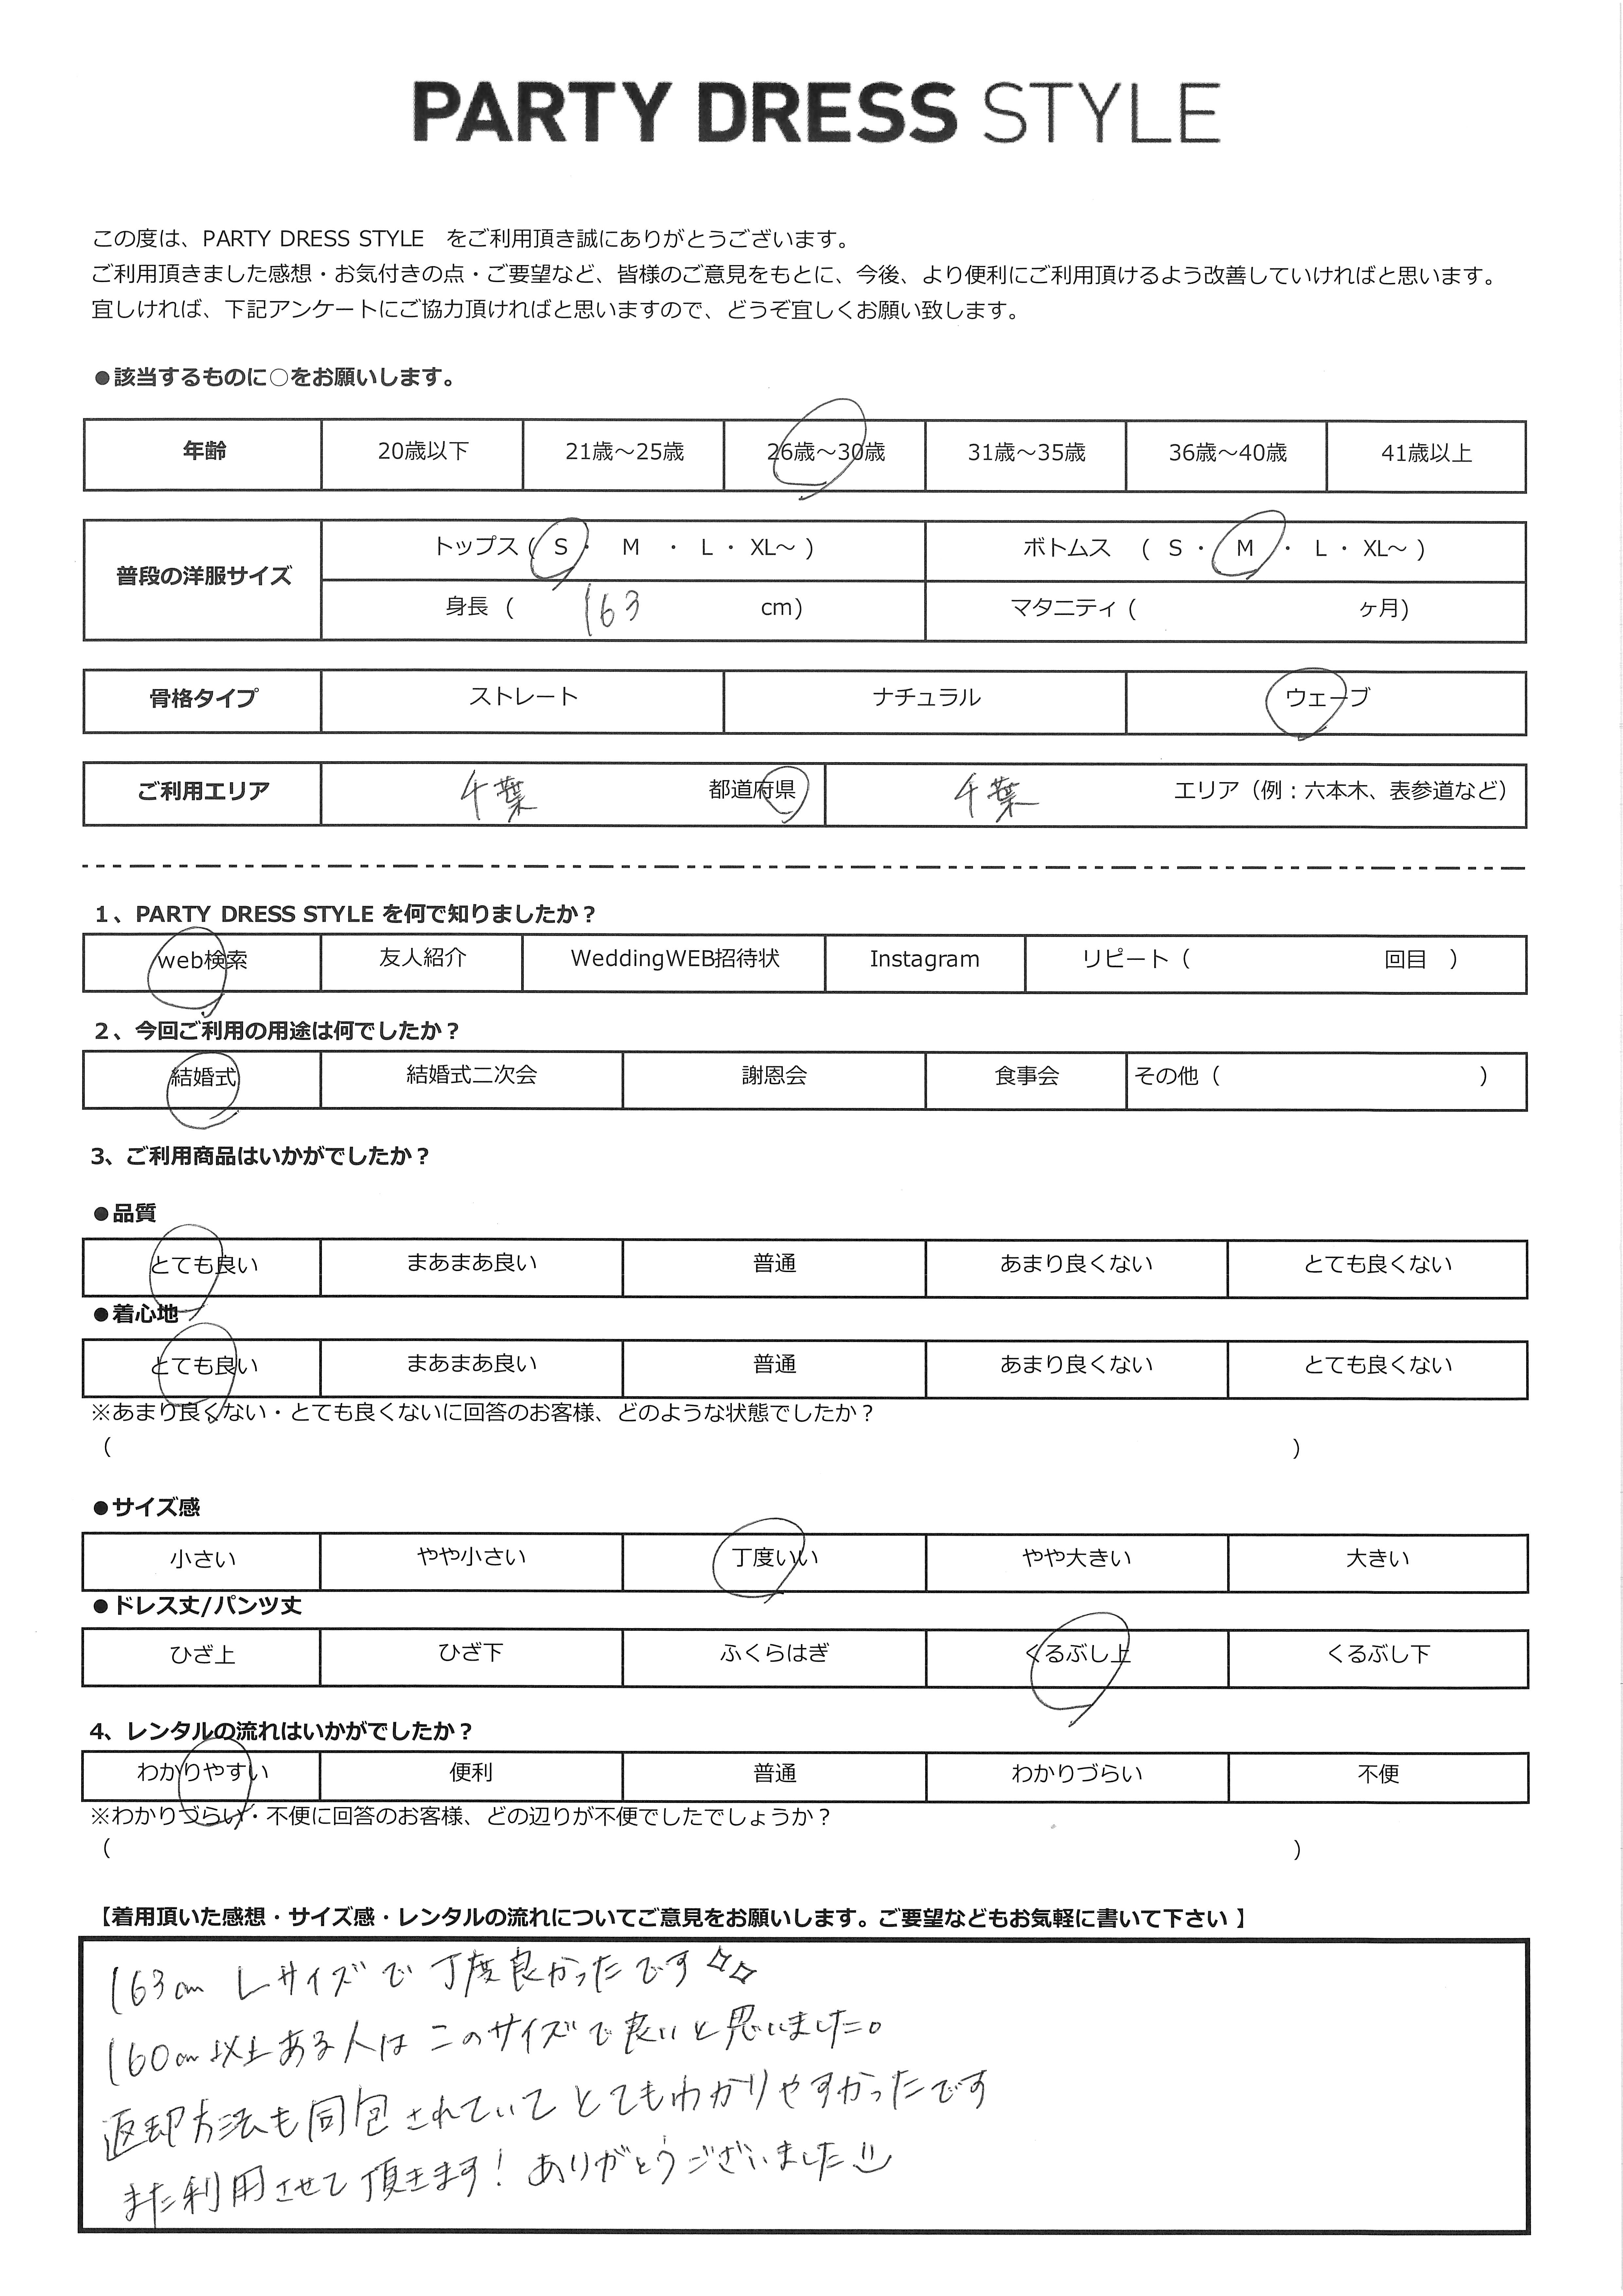 PARTY DRESS STYLE
この度は、PARTY DRESS STYLE をご利用頂き誠にありがとうございます。
ご利用頂きました感想・お気付きの点・ご要望など、皆様のご意見をもとに、今後、より便利にご利用頂けるよう改善していければと思います。
宜しければ、下記アンケートにご協力頂ければと思いますので、どうぞ宜しくお願い致します。
●該当するものに○をお願いします。
年齢 20歳以下 21歳～25歳 26歳～30歳 31歳～35歳 36歳～40歳 41歳以上
普段の洋服サイズ
トップス ( S ・ M ・ L ・ XL～ ) ボトムス ( S ・ M ・ L ・ XL～ )
身長 ( 163 cm) マタニティ ( ヶ月)
骨格タイプ ストレート ナチュラル ウェーブ
ご利用エリア 千葉 都道府県 千葉 エリア（例：六本木、表参道など）
1、PARTY DRESS STYLE を何で知りましたか？
web検索 友人紹介 WeddingWEB招待状 Instagram リピート（ 回目 ）
2、今回ご利用の用途は何でしたか？
結婚式 結婚式二次会 謝恩会 食事会 その他（ ）
3、ご利用商品はいかがでしたか？
●品質
とても良い まあまあ良い 普通 あまり良くない とても良くない
●着心地
とても良い まあまあ良い 普通 あまり良くない とても良くない
※あまり良くない・とても良くないに回答のお客様、どのような状態でしたか？
（ ）
●サイズ感
小さい やや小さい 丁度いい やや大きい 大きい
●ドレス丈/パンツ丈
ひざ上 ひざ下 ふくらはぎ くるぶし上 くるぶし下
4、レンタルの流れはいかがでしたか？
わかりやすい 便利 普通 わかりづらい 不便
※わかりづらい・不便に回答のお客様、どの辺りが不便でしたでしょうか？
（ ）
【着用頂いた感想・サイズ感・レンタルの流れについてご意見をお願いします。ご要望などもお気軽に書いて下さい 】
163cm Lサイズで丁度良かったです☆☆
160cm以上ある人はこのサイズで良いと思いました。
返却方法も同包されていてとてもわかりやすかったです
また利用させて頂きます！ありがとうございました